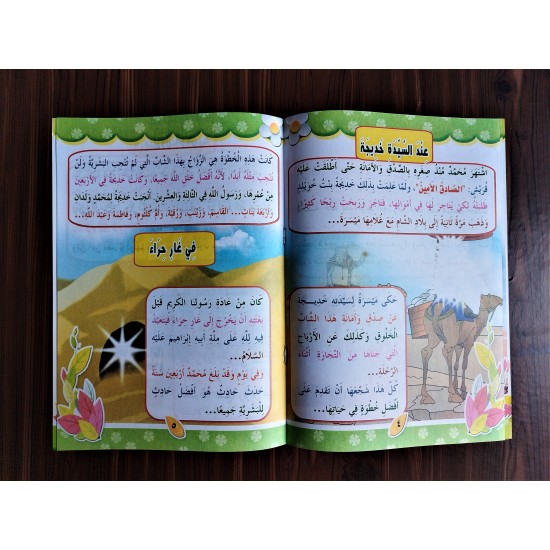 عِنْدَ السَّيِّدَةِ خَدِيجَةَ
اشْتَهَرَ مُحَمَّدٌ مُنْذُ صِغَرِهِ بِالصِّدْقِ وَالأَمَانَةِ حَتَّى أَطْلَقَتْ عَلَيْهِ
قُرَيْشٌ: "الصَّادِقَ الأَمِينَ"، وَلَمَّا عَلِمَتْ بِذَلِكَ خَدِيجَةُ بِنْتُ خُوَيْلِدٍ
طَلَبَتْهُ لِكَيْ يُتَاجِرَ لَهَا فِي أَمْوَالِهَا، فَتَاجَرَ وَرَبِحَتْ رِبْحًا كَثِيرًا،
وَذَهَبَ مَرَّةً ثَانِيَةً إِلَى بِلَادِ الشَّامِ مَعَ غُلَامِهَا مَيْسَرَةَ...
حَكَى مَيْسَرَةُ لِسَيِّدَتِهِ خَدِيجَةَ
عَنْ صِدْقِ وَأَمَانَةِ هَذَا الشَّابِّ
الخَلُوقِ وَكَذَلِكَ عَنِ الأَرْبَاحِ
الَّتِي جَنَاهَا مِنَ التِّجَارَةِ أَثْنَاءَ
الرِّحْلَةِ...
كُلُّ هَذَا شَجَّعَهَا أَنْ تُقْدِمَ عَلَى
أَفْضَلِ خُطْوَةٍ فِي حَيَاتِهَا...
٤
كَانَتْ هَذِهِ الْخُطْوَةُ هِيَ الزَّوَاجُ بِهَذَا الشَّابِّ الَّذِي لَمْ تُنْجِبِ البَشَرِيَّةُ وَلَنْ
تُنْجِبَ مِثْلَهُ أَبَدًا، لِأَنَّهُ أَفْضَلُ خَلْقِ اللَّهِ جَمِيعًا، وَكَانَتْ خَدِيجَةُ فِي الأَرْبَعِينَ
مِنْ عُمْرِهَا، وَرَسُولُ اللَّهِ فِي الثَّالِثَةِ وَالْعِشْرِينَ. أَنْجَبَتْ خَدِيجَةُ لِمُحَمَّدٍ وَلَدَانِ
وَأَرْبَعَةَ بَنَاتٍ... القَاسِمَ، وَزَيْنَبَ، وَرُقَيَّةَ، وَأُمَّ كُلْثُومٍ، وَفَاطِمَةَ وَعَبْدَ اللَّهِ...
فِي غَارِ حِرَاءَ
كَانَ مِنْ عَادَةِ رَسُولِنَا الكَرِيمِ قَبْلَ
بِعْثَتِهِ أَنْ يَخْرُجَ إِلَى غَارِ حِرَاءَ فَيَتَعَبَّدَ
فِيهِ لِلَّهِ عَلَى مِلَّةِ أَبِيهِ إِبْرَاهِيمَ عَلَيْهِ
السَّلَامُ...
وَفِي يَوْمٍ وَقَدْ بَلَغَ مُحَمَّدٌ أَرْبَعِينَ سَنَةً
حَدَثَ حَادِثٌ هُوَ أَفْضَلُ حَادِثٍ
لِلْبَشَرِيَّةِ جَمِيعًا...
٥